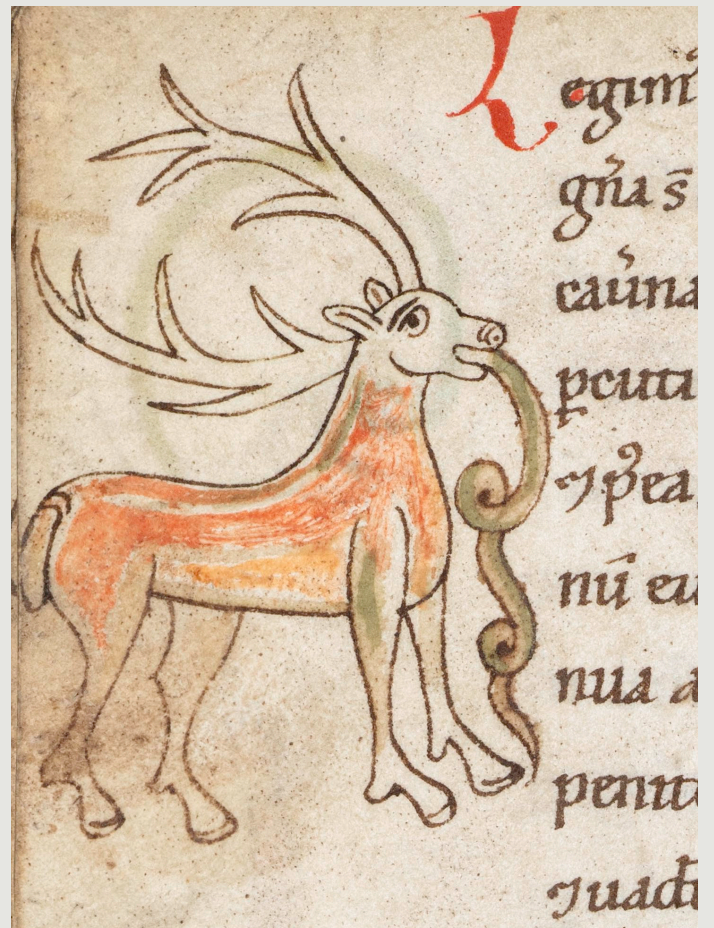 Legim᷒
gn̄a s̄
cau̓na
ꝑcuti
⁊ p̓ea
nū eu
nua a
penit
⁊ uad